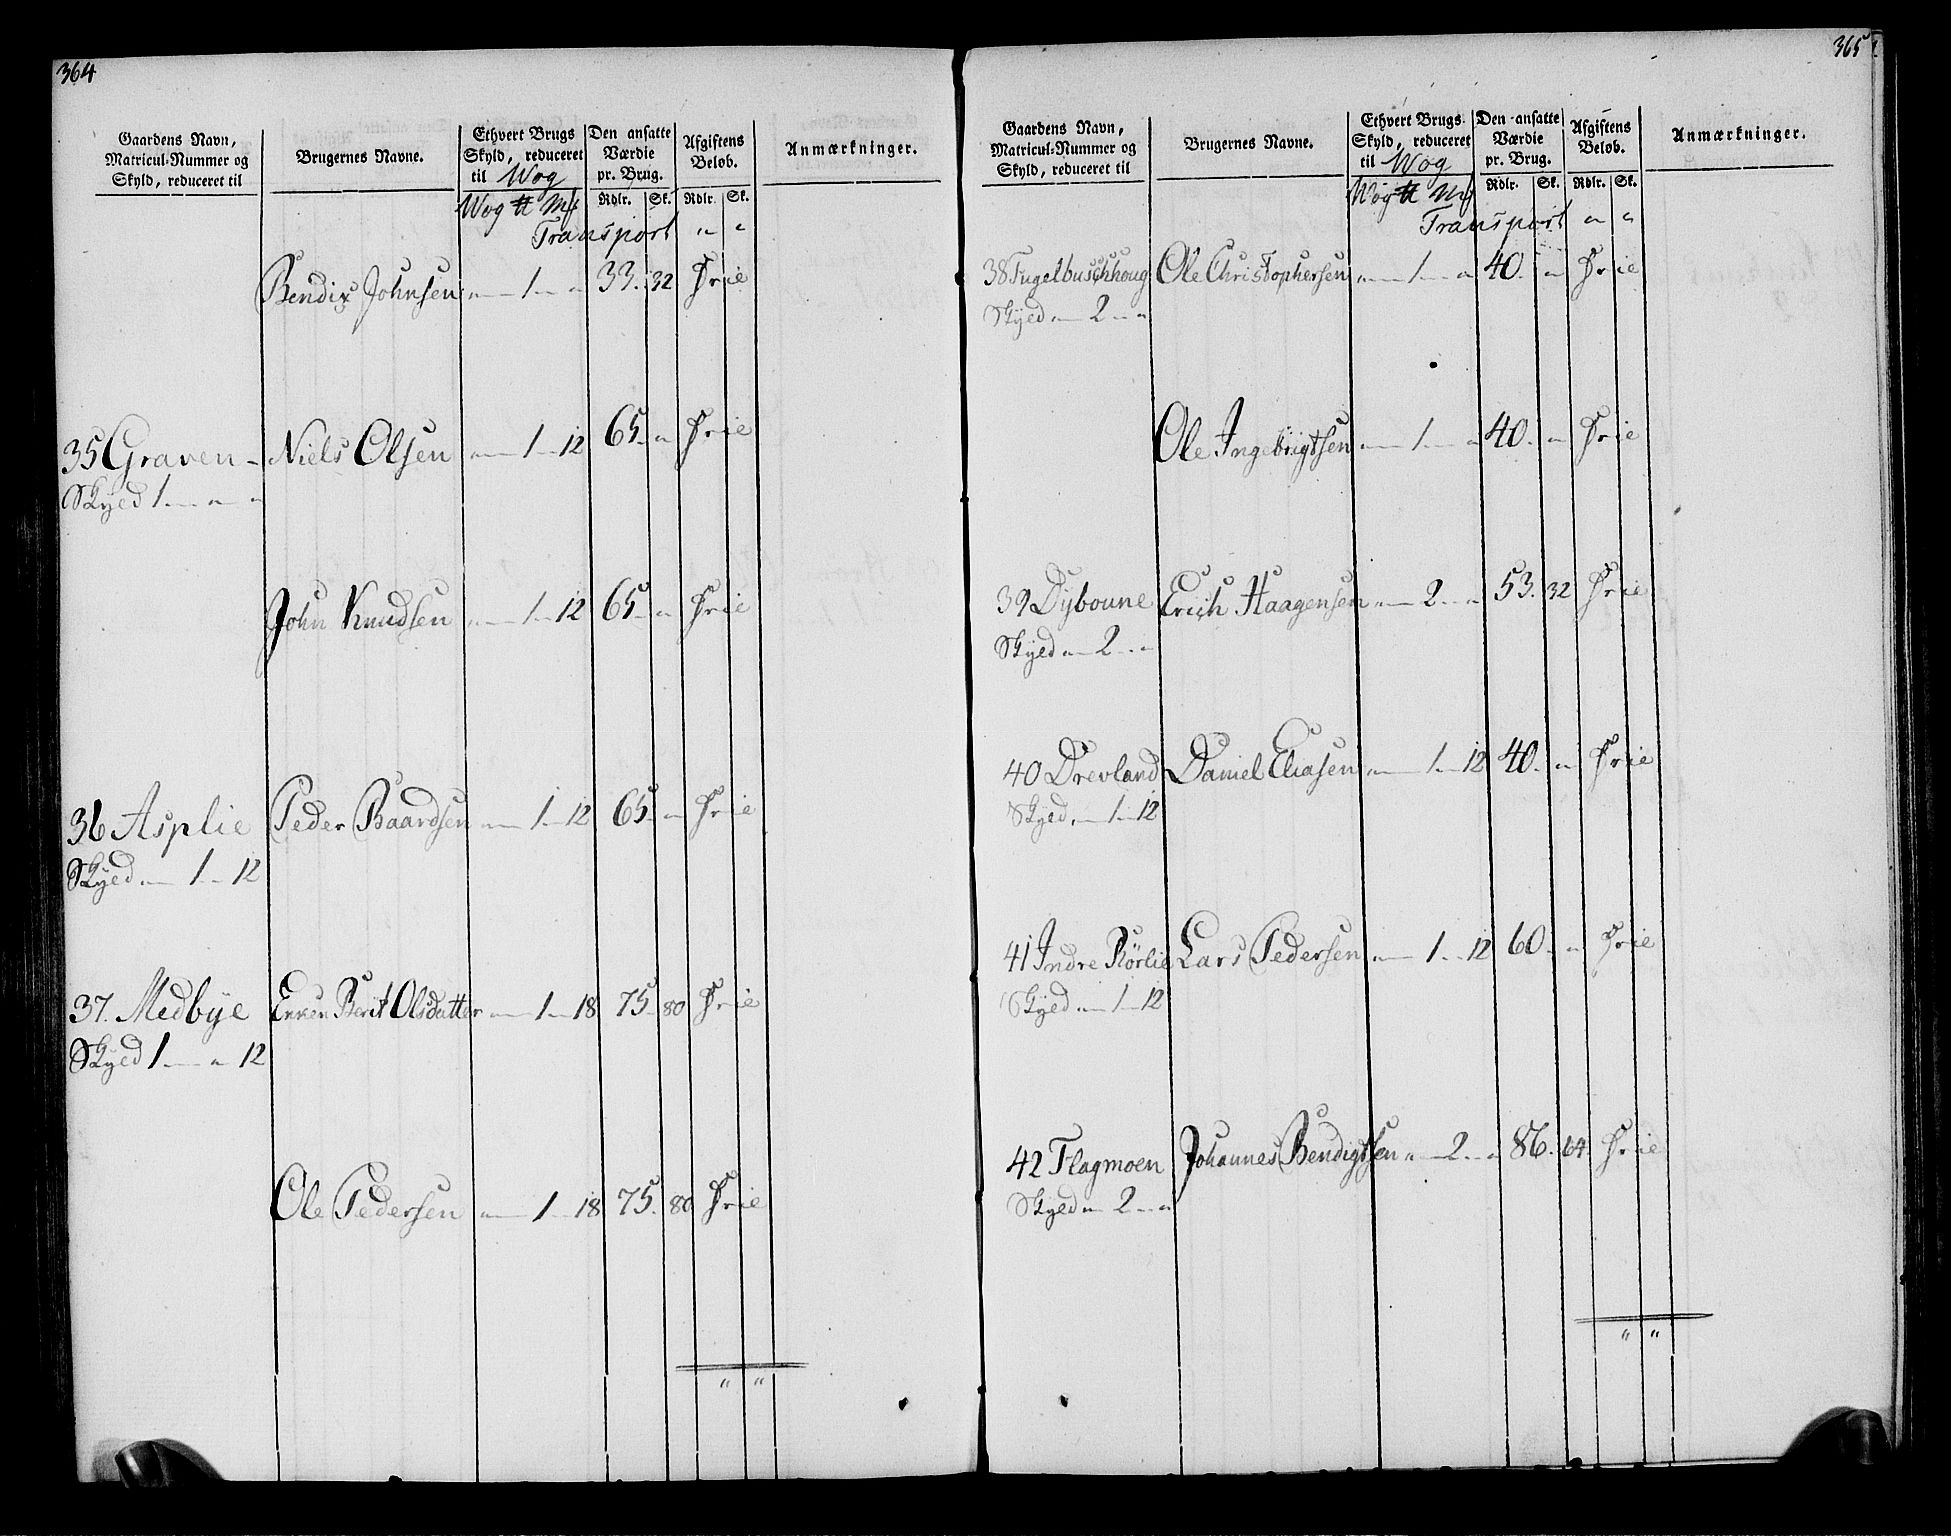 364
Gaardens Navn, Matricul-Nummer og Skyld, reduceret til
Brugernes Navne.
Ethvert Brugs Skyld, reduceret til Wog
Den ansatte Værdie pr. Brug.
Afgiftens Beløb.
Anmærkninger.
Wog ℔ Mk Rdlr. Sk. Rdlr. Sk.
Transport " "
Bendix Johnsen " 1 " 33. 32 Frie
35 Graven Niels Olsen " 1 12 65. " Frie
Skyld 1 " "
John Knudsen " 1 12 65. " Frie
36 Asplie Peder Baardsen " 1 12 65. " Frie
Skyld " 1 12
37. Medbye Enken Berit Olsdatter " 1 18 75. 80 Frie
Skyld 1 " 12
Ole Pedersen " 1 18 75. 80 Frie
" "
365
Gaardens Navn, Matricul-Nummer og Skyld, reduceret til
Brugernes Navne.
Ethvert Brugs Skyld, reduceret til Wog
Den ansatte Værdie pr. Brug.
Afgiftens Beløb.
Anmærkninger.
Wog ℔ Mk Rdlr. Sk. Rdlr. Sk.
Transport " "
38 Fugelbuschhoug Ole Christophersen " 1 " 40. " Frie
Skyld " 2 "
Ole Ingebrigtsen " 1 " 40. " Frie
39 Dyboune Erich Haagensen " 2 " 53. 32 Frie
Skyld " 2 "
40 Drevland Daniel Eliasen " 1 12 40. " Frie
Skyld " 1 12
41 Indre Rörlie Lars Pedersen " 1 12 60. " Frie
Skyld " 1 12
42 Flagmoen Johannes Bendigtsen " 2 " 86. 64. Frie
Skyld " 2 "
" "